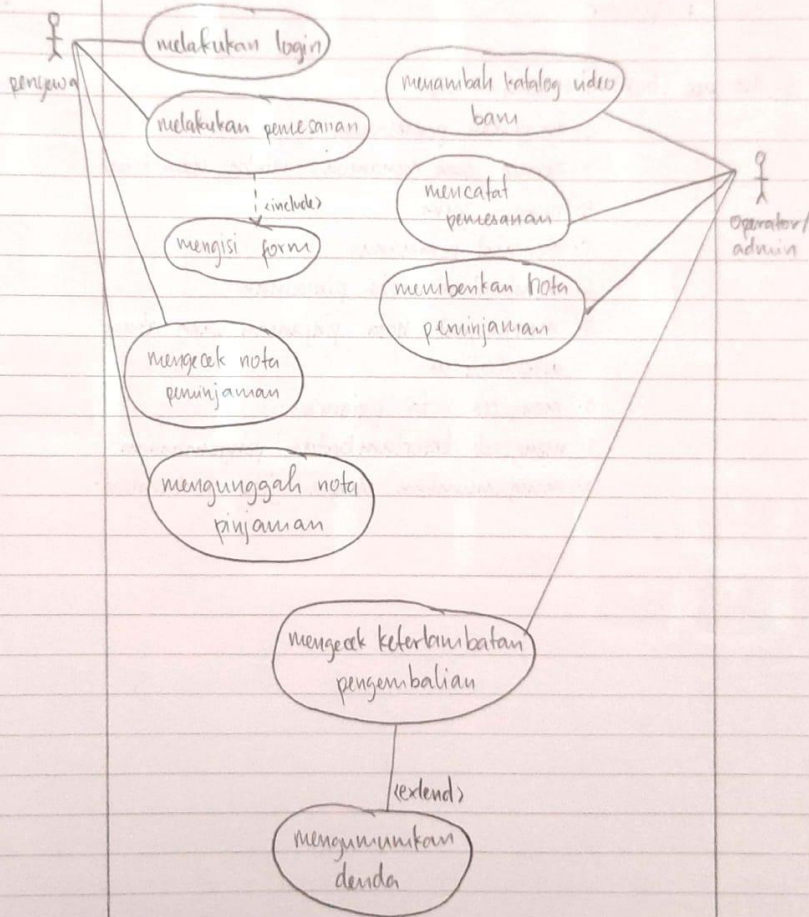 melakukan login
penyewa
melakukan pemesanan
<include>
mengisi form
mengecek nota
peminjaman
mengunggah nota
pinjaman
menambah katalog video
baru
mencatat
pemesanan
memberikan nota
peminjaman
operator/
admin
mengecek keterlambatan
pengembalian
<extend>
mengumumkan
denda